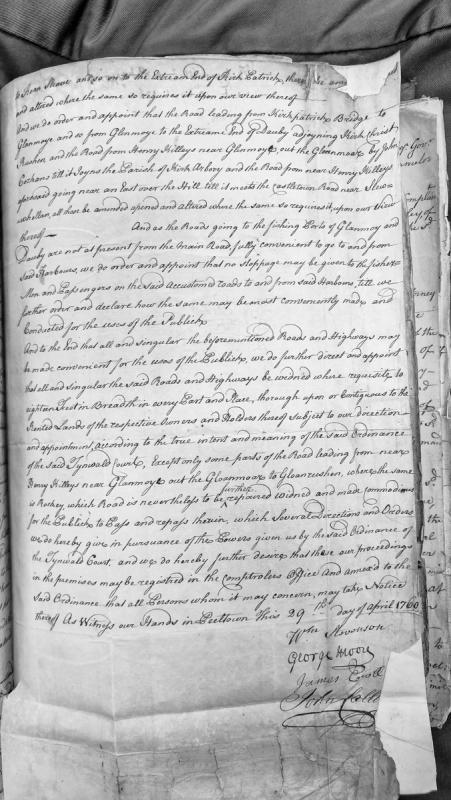 Shoar above and so on to the Extream End of Kirk Patrick,
and altred where the same so requires it upon our view thereof
And we do order and appoint that the Road leading from Kirkpatrick Bridge to
Glanmoye and so from Glenmoye to the Extreame End of Dauby adjoyning Kirk Christ
Rushen, and the Road from Henry Killeys near Glanmoye, out the Gloanmoor by John
Cochans till it Joyns the Parish of Kirk Arbory and the Road from near Henry Killeys
aforesaid going near an East over the Hill till it meets the castletown Road near
whallan, all shall be amended opened and altred where the same so requires it, upon our view
thereof And as the Roads going to the fishing Ports of Glanmoy and
Dauby are not at present from the Main Road, fully convenient to go to and from
said Harbours, we do order and appoint that no stoppage may be given to the fisher=
Men and Passengers on the said Accustomed roads to and from said Harbours, till we
further order and declare how the same may be most conveniently made and
Conducted for the uses of the Publick
And to the End that all and singular the beforementioned Roads and Highways may
be made convenient for the uses of the Publick, we do further direct and appoint
that all and singular the said Roads and Highways be widned where requisite to
eighteen Feet in Breadth in every Part and Place, thorough upon or Contigious to the
Rented Lands of the respective Owners and Holders thereof Subject to our direction
and appointment, according to the true intent and meaning of the said Ordinance
of the said Tynwald Court, Except only some parts of the Road leading from near
Henry Killeys near Glanmoye out the Gloanmoor to Gloanrushen, where the same
is Rockey, which Road is nevertheless to be further repaired widned and made commodious
for the Publick to Pass and repass therein, which Several Directions and Orders
we do hereby give in pursuance of the Powers given us by the said Ordinance of
the Tynwald Court, and we do hereby further desire that these our proceedings
in the premises may be registred in the comptrolers Office And annexed to the
Said Ordinance that all Persons whom it may concern, may take Notice
thereof As Witness our Hands in Peeltown This 29th day of April 1760
Wm Stevenson
George Moore
James
John